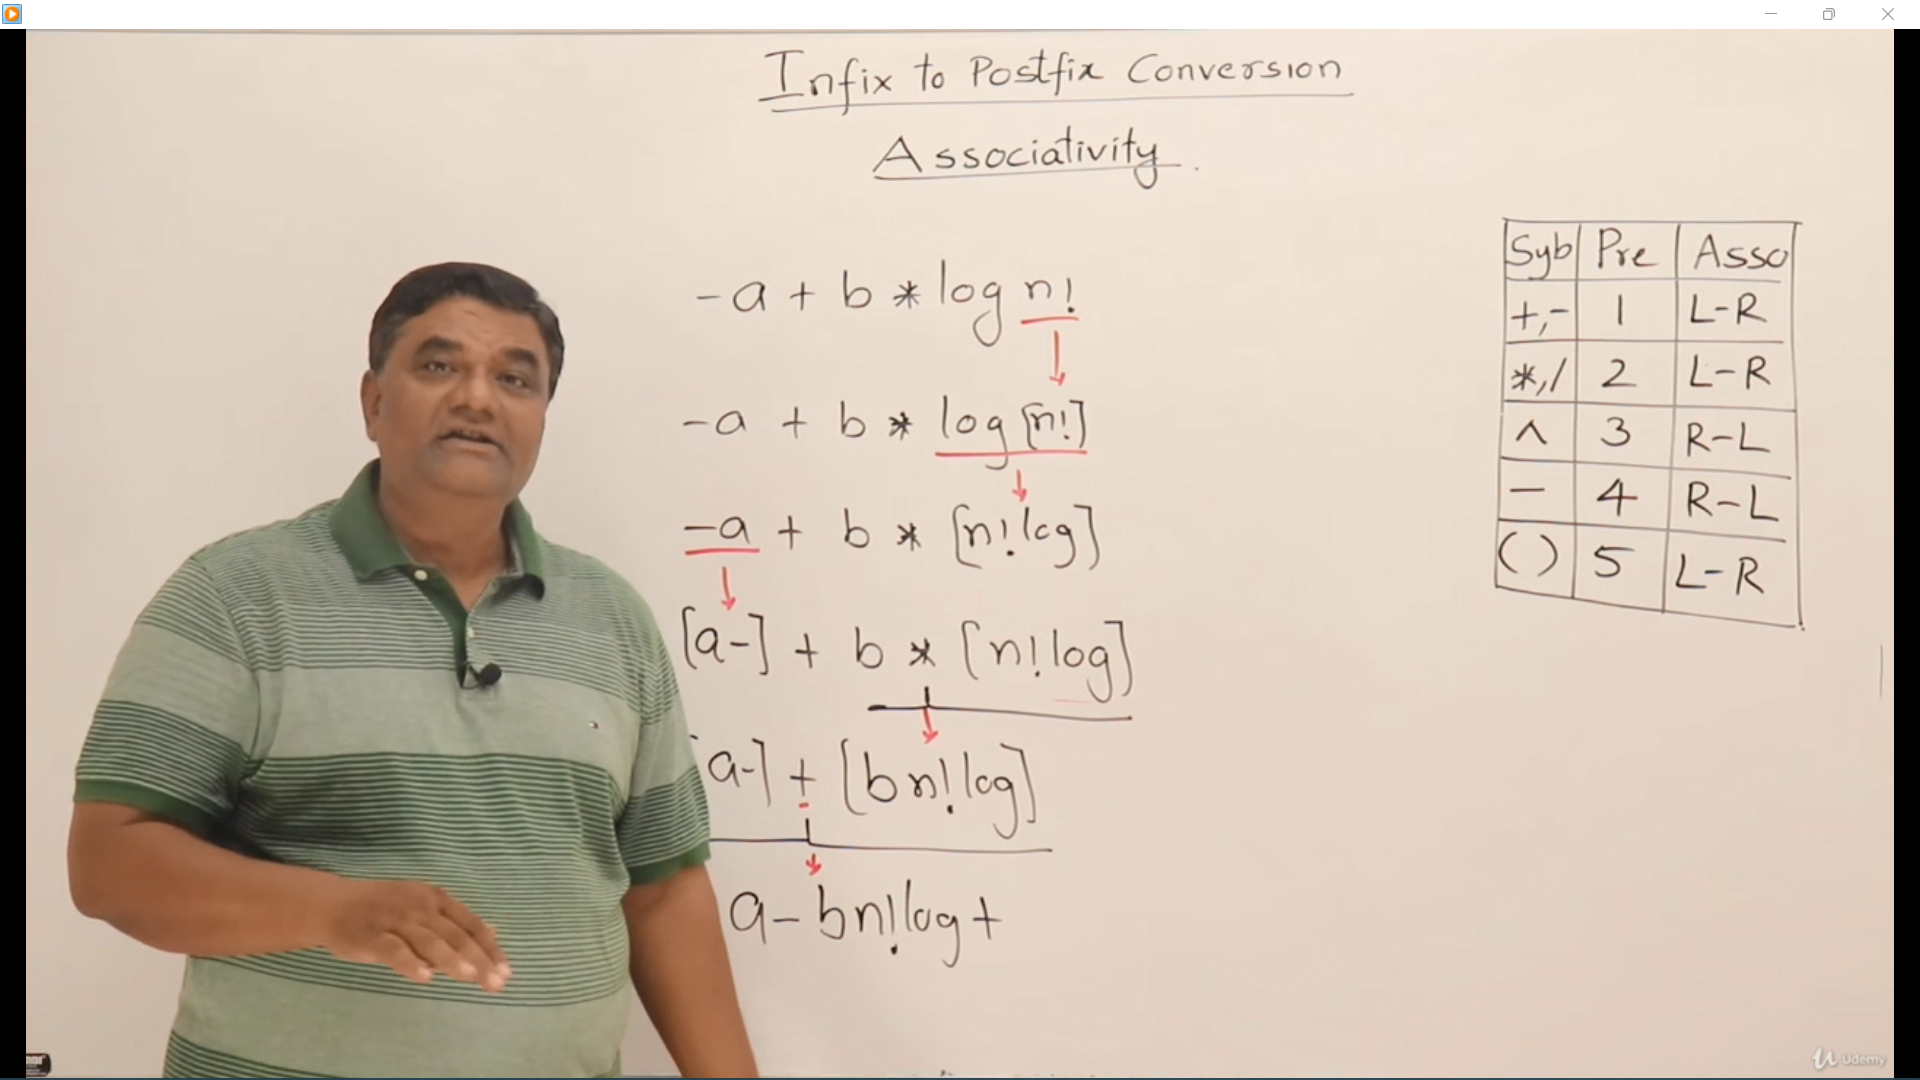 Infix to Postfix Conversion
Associativity.
-a + b * log n!
-a + b * log [n!]
-a + b * [n! log]
[a-] + b * [n! log]
a-] + [b n! log]
a - b n! log +
Syb Pre Asso
+,- 1 L-R
*,/ 2 L-R
^ 3 R-L
- 4 R-L
( ) 5 L-R
Udemy